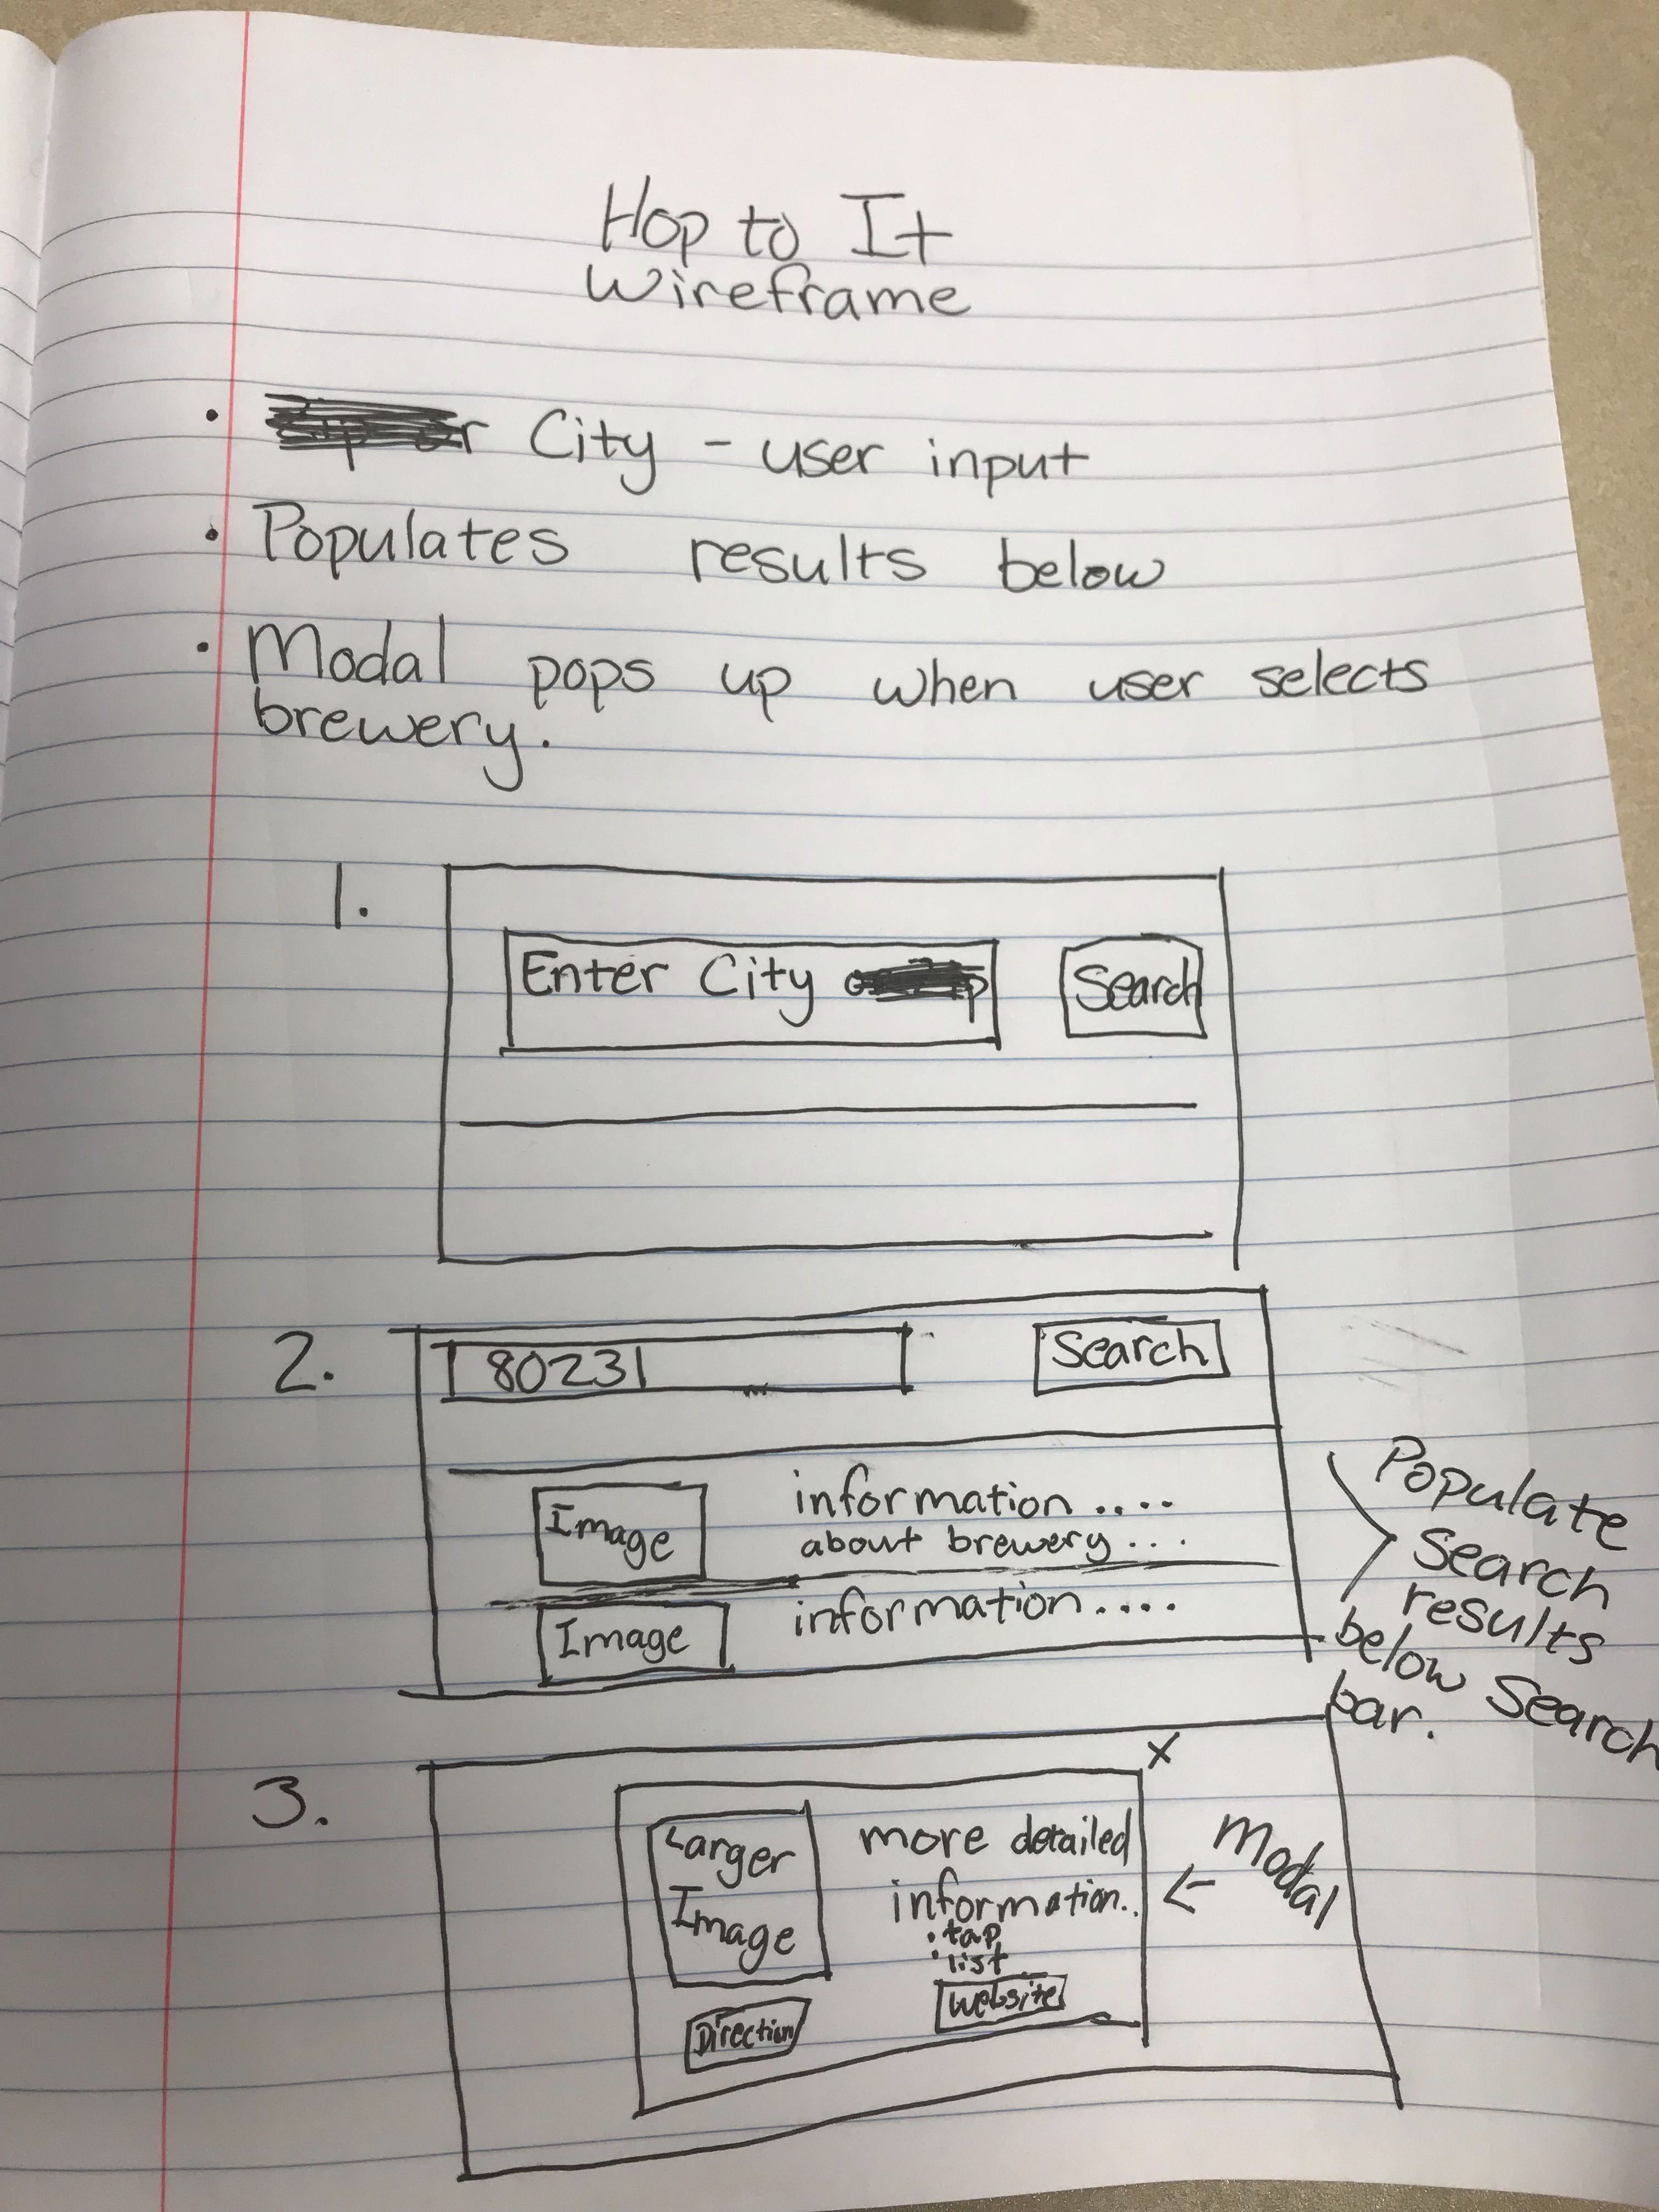 Hop to It
Wireframe
• City - user input
• Populates results below
• Modal pops up when user selects
brewery.
1.
Enter City
Search
2.
80231
Search
Image
information ....
about brewery ...
Image
information ....
Populate
Search
results
below Search
bar.
3.
X
Larger
Image
more detailed
information..
• tap
• list
Direction
Website
← Modal